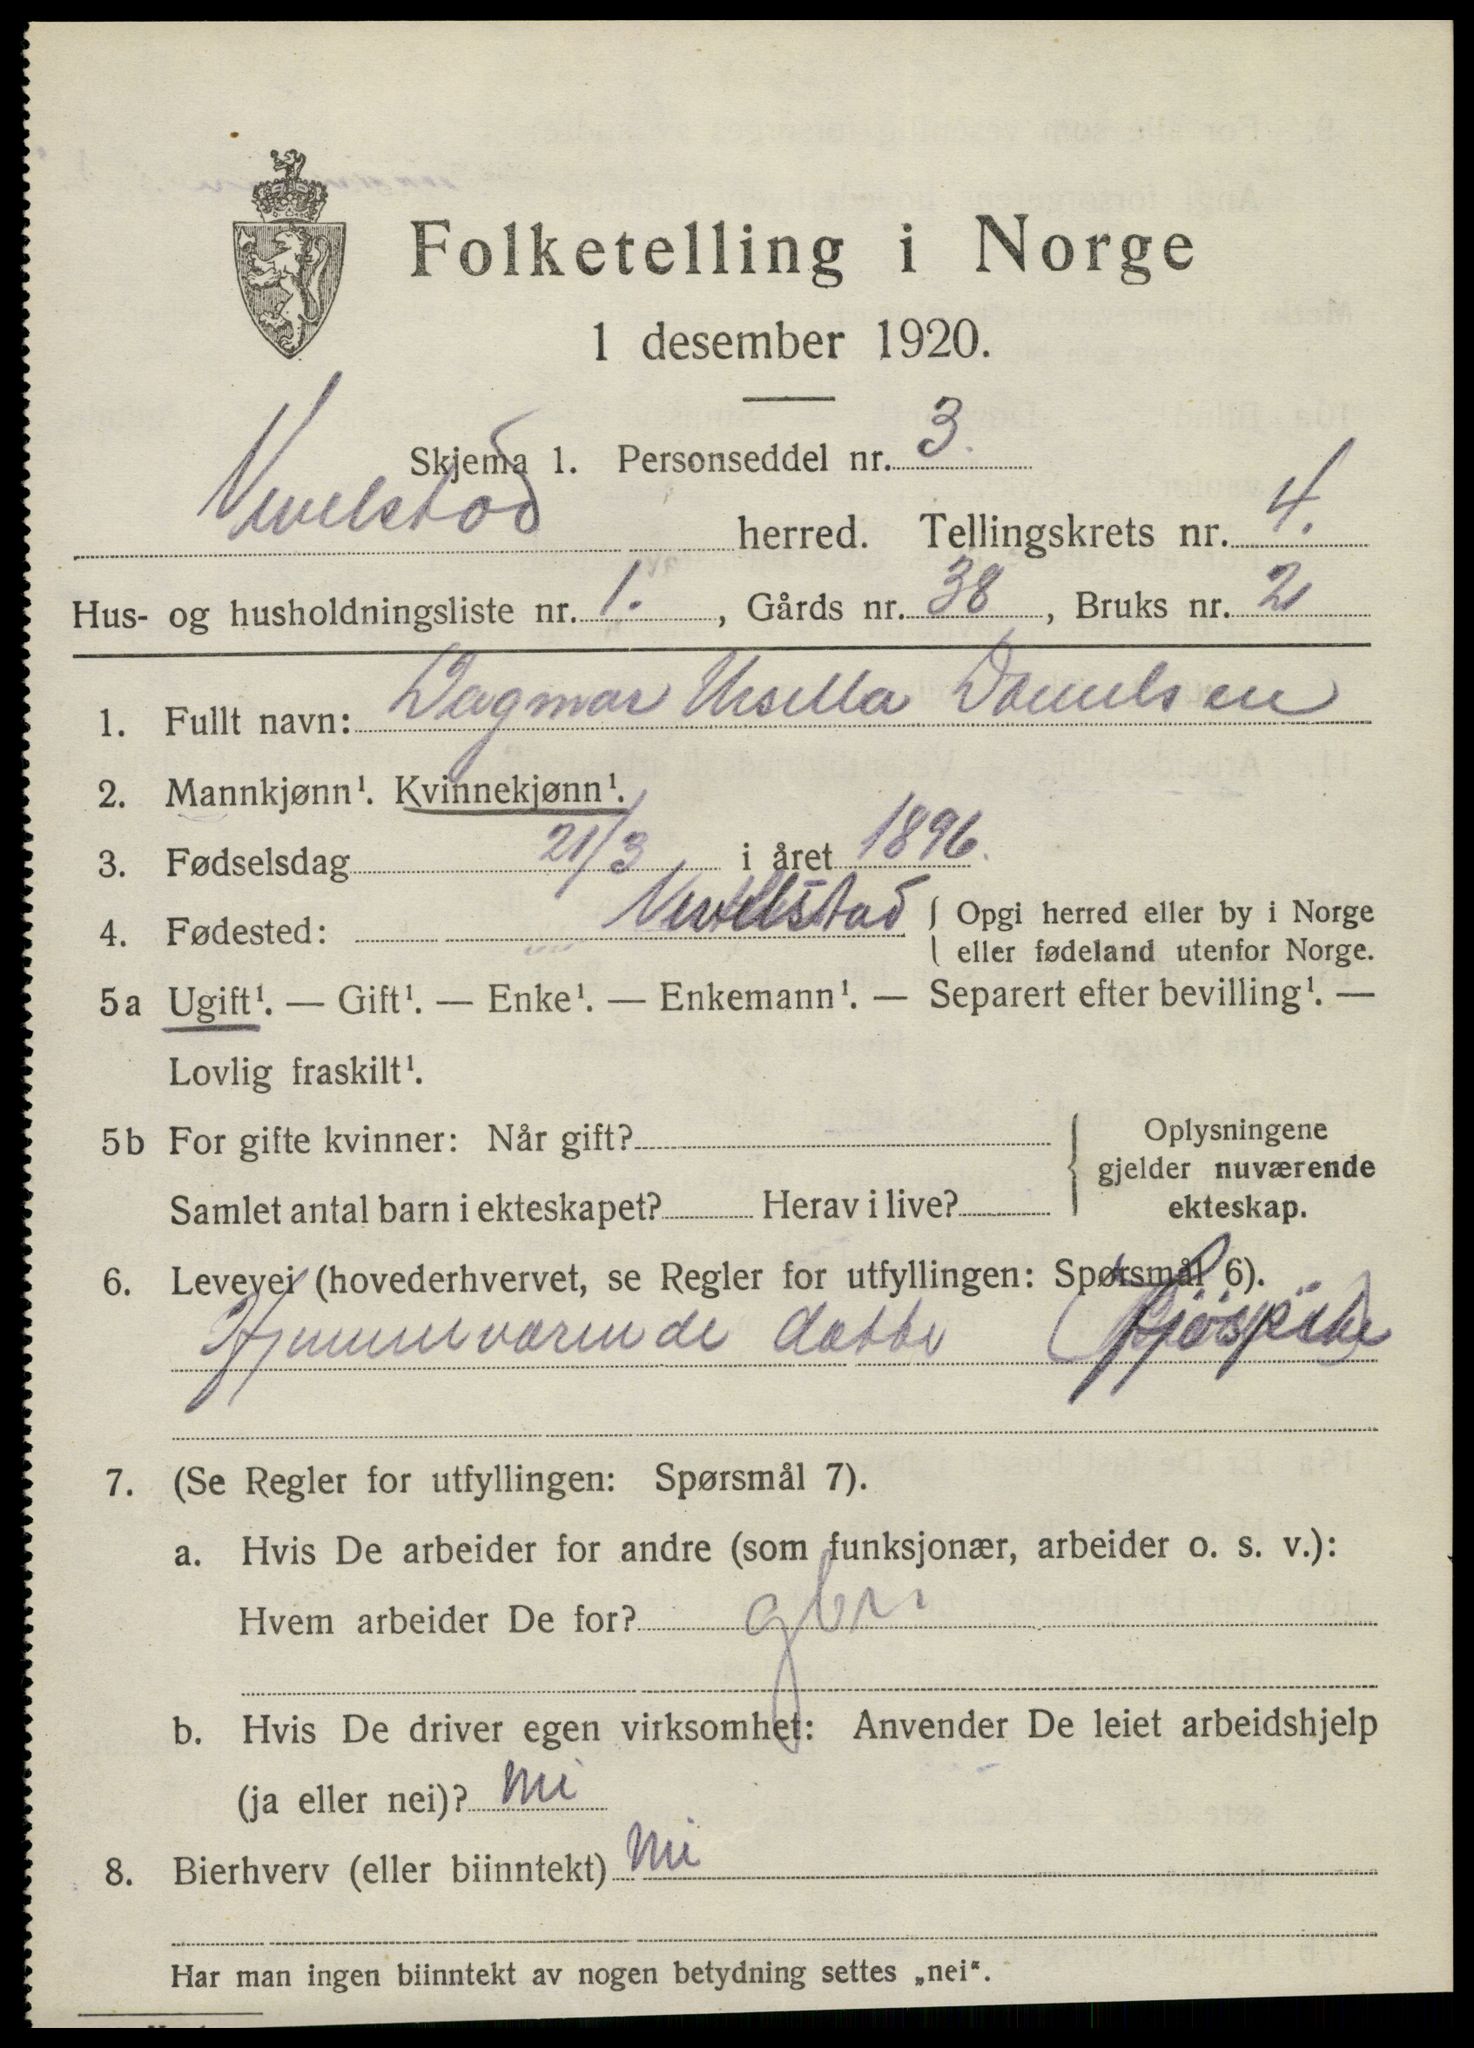 Folketelling i Norge
1 desember 1920.
Skjema 1. Personseddel nr. 3.
Vevelstad herred. Tellingskrets nr. 4.
Hus- og husholdningsliste nr. 1. , Gårds nr. 38 , Bruks nr. 2
1. Fullt navn: Dagmar Ursella Danielsen
2. Mannkjønn¹. Kvinnekjønn¹.
3. Fødselsdag 21/3 i året 1896.
4. Fødested: Vevelstad { Opgi herred eller by i Norge
eller fødeland utenfor Norge.
5a Ugift¹. — Gift¹. — Enke¹. — Enkemann¹. — Separert efter bevilling¹. —
Lovlig fraskilt¹.
5b For gifte kvinner: Når gift? { Oplysningene
gjelder nuværende
Samlet antal barn i ekteskapet? Herav i live? ekteskap.
6. Levevei (hovederhvervet, se Regler for utfyllingen: Spørsmål 6).
Hjemmeværende datter
7. (Se Regler for utfyllingen: Spørsmål 7).
a. Hvis De arbeider for andre (som funksjonær, arbeider o. s. v.):
Hvem arbeider De for?
b. Hvis De driver egen virksomhet: Anvender De leiet arbeidshjelp
(ja eller nei)? nei
8. Bierhverv (eller biinntekt) nei
Har man ingen biinntekt av nogen betydning settes „nei“.